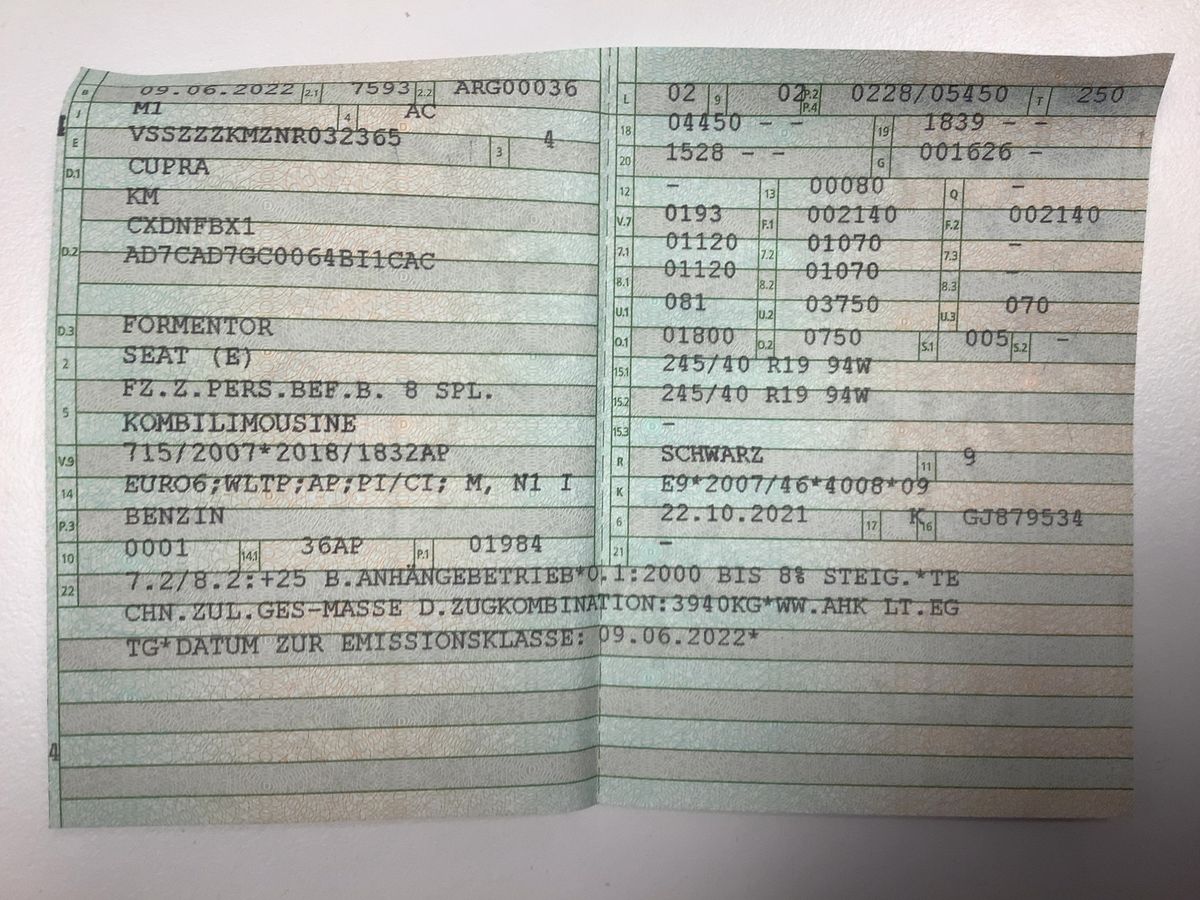 B 09.06.2022 2.1 7593 2.2 ARG00036
J M1 4 AC
E VSSZZZKMZNR032365 3 4
D.1 CUPRA
KM
CXDNFBX1
D.2 AD7CAD7GC0064BI1CAC
D.3 FORMENTOR
2 SEAT (E)
FZ.Z.PERS.BEF.B. 8 SPL.
5 KOMBILIMOUSINE
V.9 715/2007*2018/1832AP
14 EURO6;WLTP;AP;PI/CI; M, N1 I
P.3 BENZIN
10 0001 14.1 36AP P.1 01984
L 02 9 02 P.2 P.4 0228/05450 T 250
18 04450 – – 19 1839 – –
20 1528 – – G 001626 –
12 – 13 00080 Q –
V.7 0193 F.1 002140 F.2 002140
7.1 01120 7.2 01070 7.3 –
8.1 01120 8.2 01070 8.3 –
U.1 081 U.2 03750 U.3 070
O.1 01800 O.2 0750 S.1 005 S.2 –
15.1 245/40 R19 94W
15.2 245/40 R19 94W
15.3 –
R SCHWARZ 11 9
K E9*2007/46*4008*09
6 22.10.2021 17 K 16 GJ879534
21 –
22 7.2/8.2:+25 B.ANHÄNGEBETRIEB*O.1:2000 BIS 8% STEIG.*TE
CHN.ZUL.GES-MASSE D.ZUGKOMBINATION:3940KG*WW.AHK LT.EG
TG*DATUM ZUR EMISSIONSKLASSE: 09.06.2022*
4